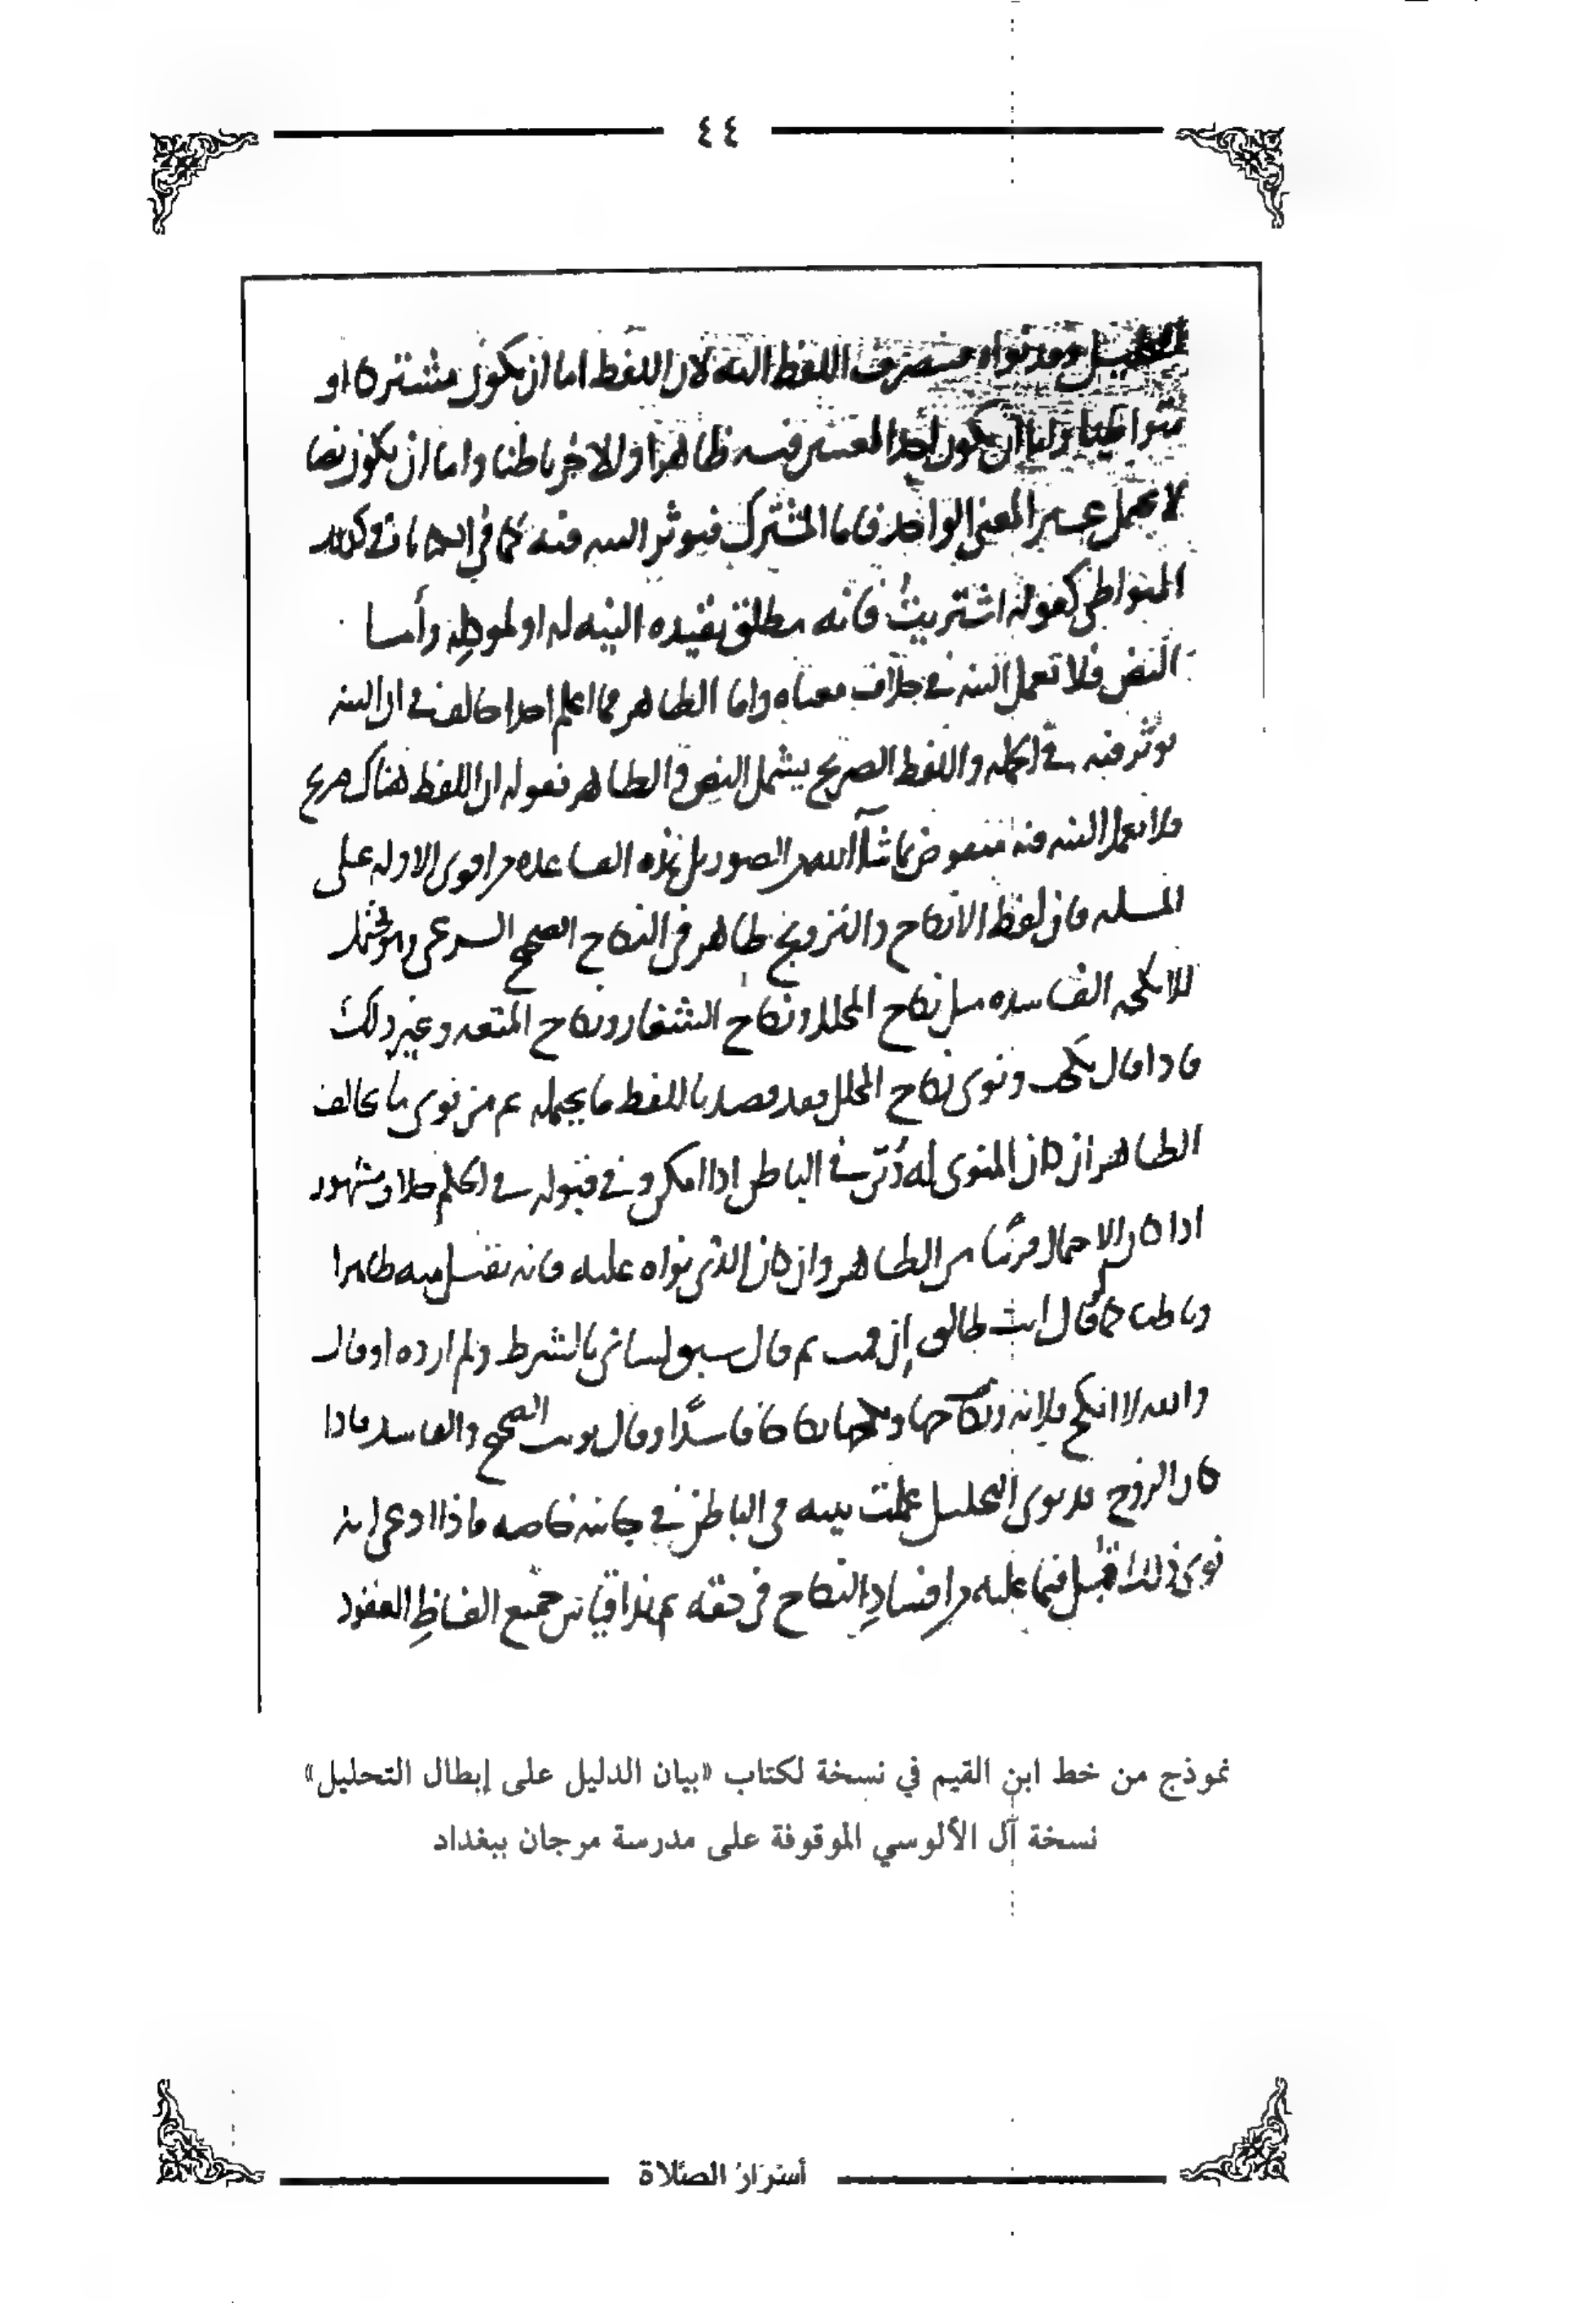 ٤٤
التحليل وقد نواه فينصرف اللفظ اليه لان اللفظ اما ان يكون مشتركا او
متواطيا واما ان يكون احد المعنيين فيه ظاهرا وللاخر باطنا واما ان يكون نصا
لا يحتمل غير المعنى الواحد فاما المشترك فيوثر النيه فيه كما في الكنايات وكذلك
المتواطي كقوله اشتريتُ فانه مطلق تقيده النيه له او لموكله وأما
النص فلا تعمل النيه في خلاف معناه واما الظاهر فما اعلم احدا خالف في ان النيه
توثر فيه في الجمله واللفظ الصريح يشمل النص والظاهر فقوله ان اللفظ هناك صريح
فلا تعمل النيه فيه منقوض بما شآ الله من الصور بل هذه القاعده من اقوى الادله على
المسله فان لفظ الانكاح والتزويج ظاهر في النكاح الصحيح الشرعي وهو محتمل
للانكحه الفاسده مثل نكاح المحلل ونكاح الشغار ونكاح المتعه وغير ذلك
فاذا قال نكحت ونوى نكاح المحلل فقد قصد باللفظ ما يحتمله ثم من نوى ما يخالف
الظاهر ان كان المنوى له دُيّن في الباطن اذا امكن وفي قبوله في الحكم خلاف مشهور
اذا كان الاحتمال قريبًا من الظاهر وان كان الذي نواه عليه فانه يقبل منه ظاهرا
وباطنا كما لو قال انت طالق إن قمت ثم قال سبق لساني بالشرط ولم ارده او قال
والله لا انكح فلانه ونكاحها نكاحا فاسدًا وقال نويت الصحيح والفاسد فاذا
كان الزوج قد نوى التحليل عملت نيته في الباطن في جانبه خاصه فاذا ادعى انه
نوى ذلك قُبل فيما عليه من افسادِ النكاح في حقه ثم هذا قياس جميع الفاظِ العقود
نموذج من خط ابن القيم في نسخة لكتاب «بيان الدليل على إبطال التحليل»
نسخة آل الألوسي الموقوفة على مدرسة مرجان ببغداد
أسرار الصلاة